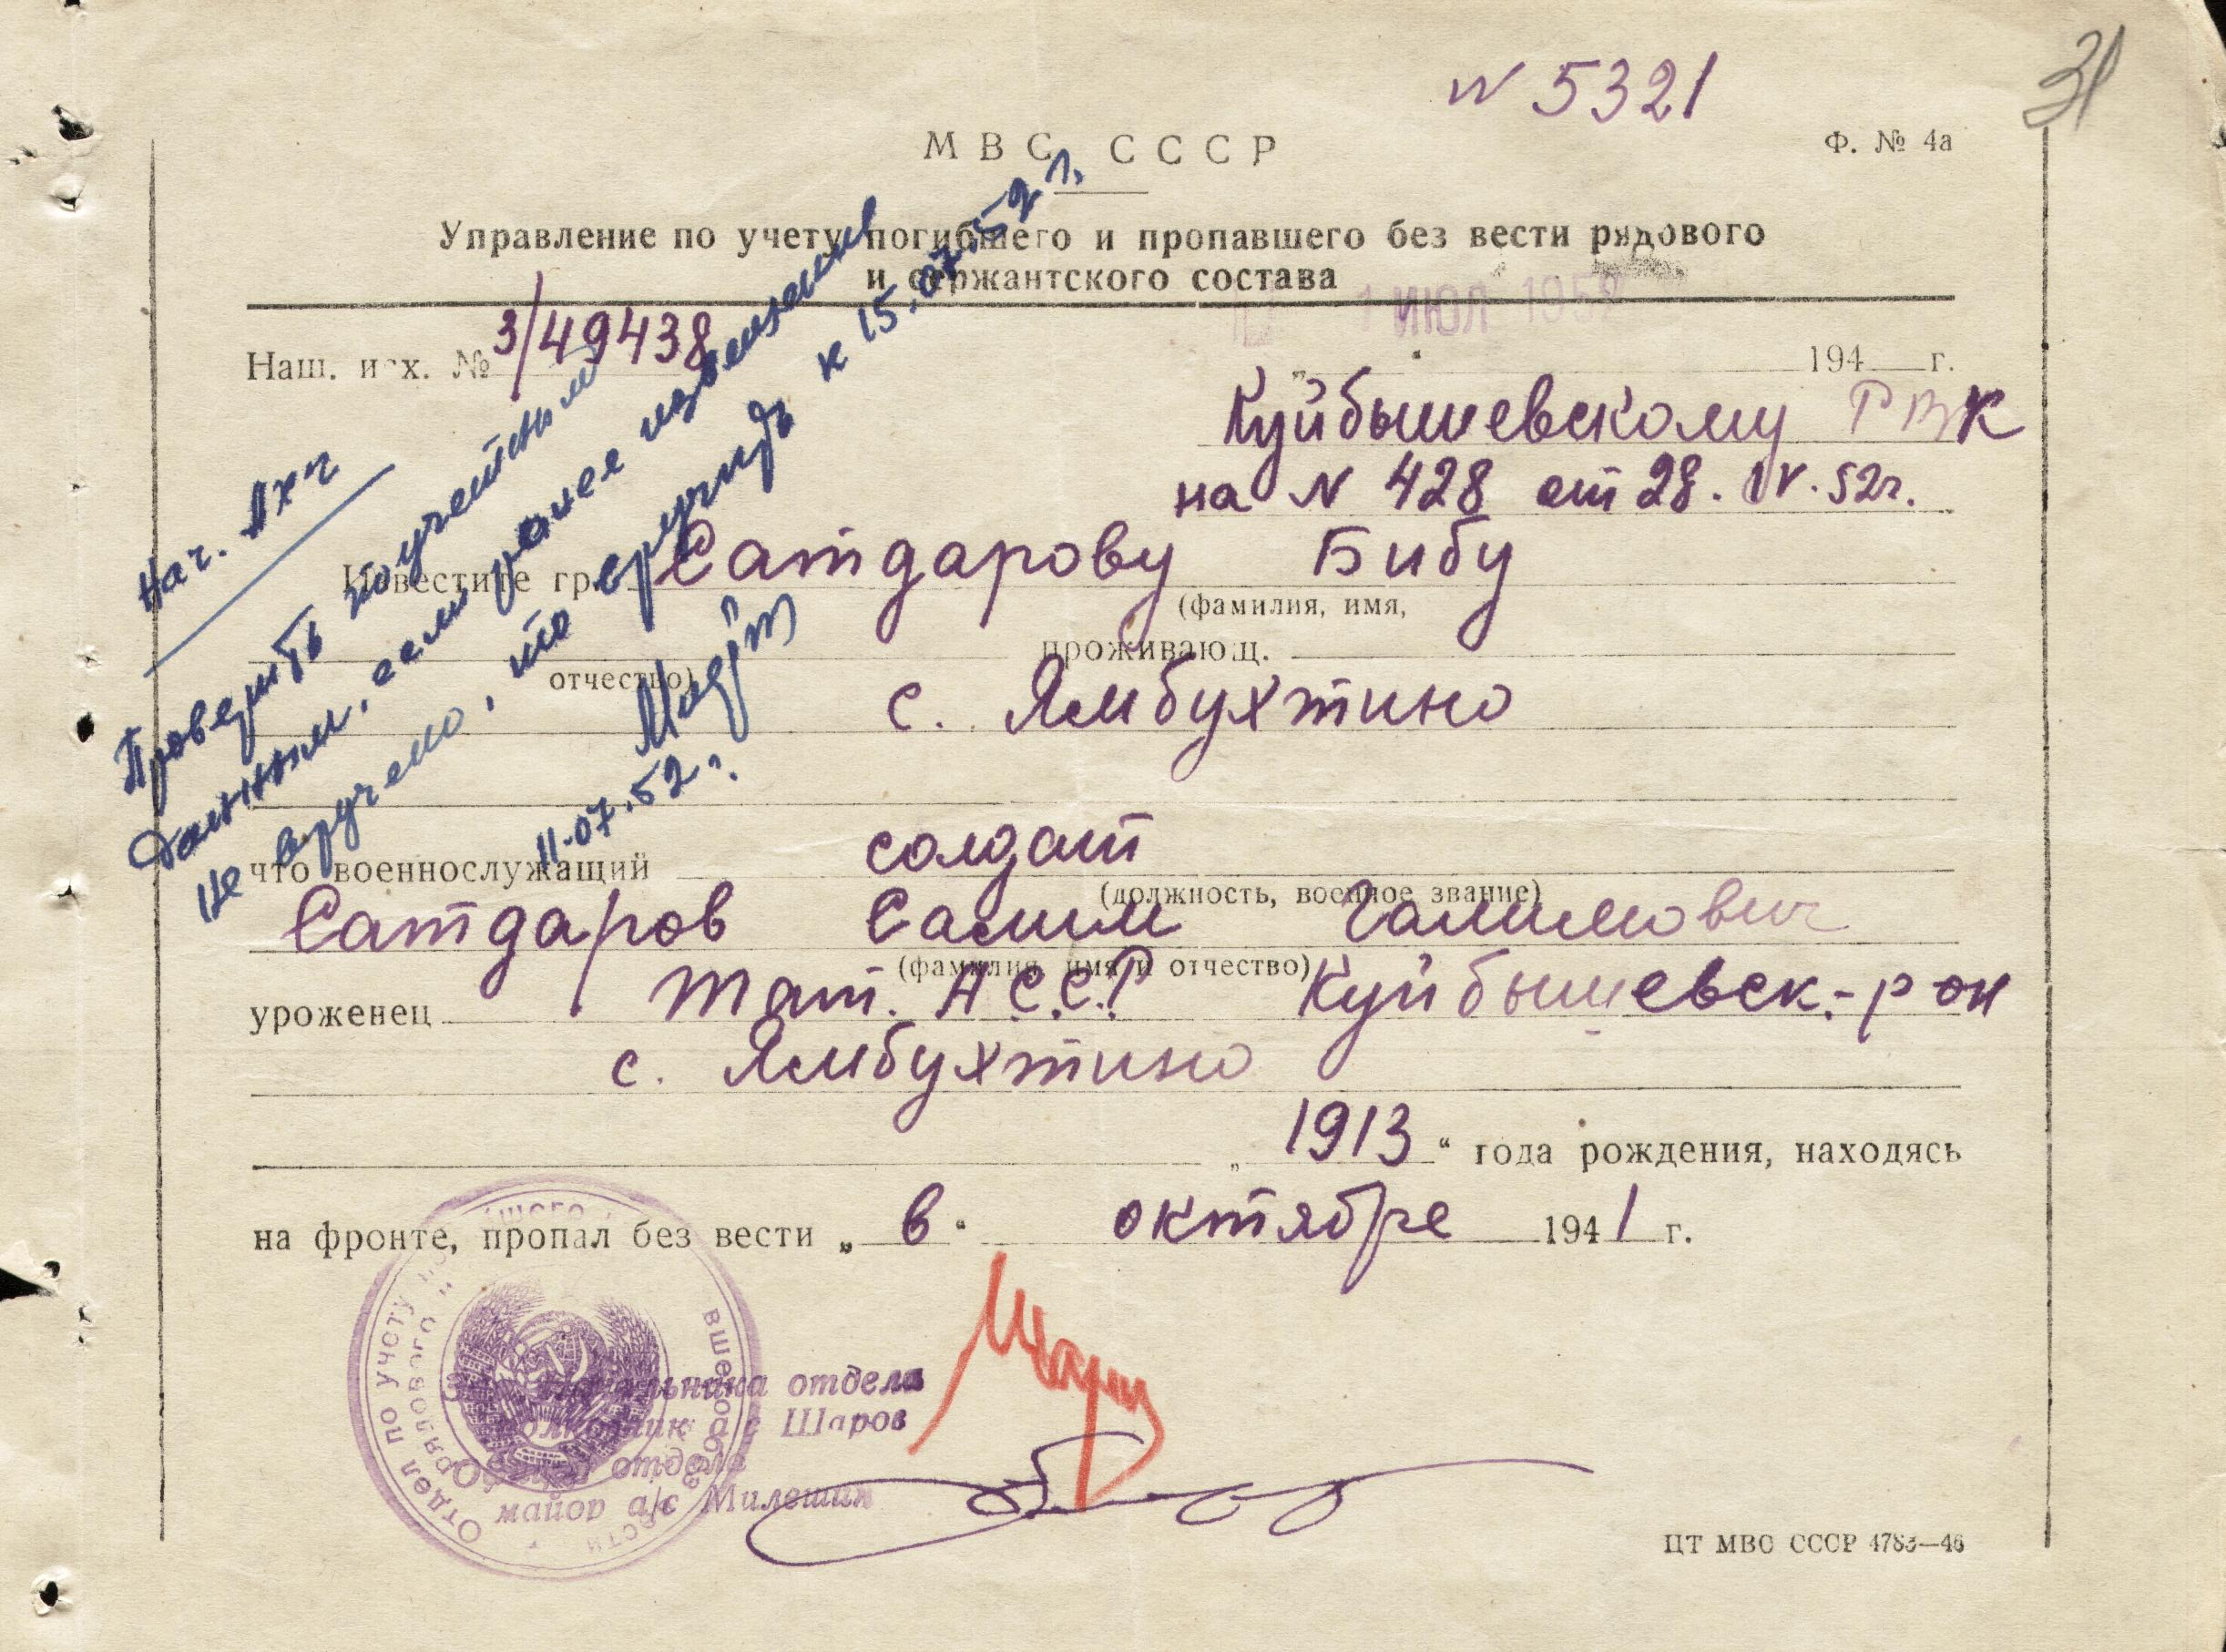 31
N 5321
МВС СССР
Ф. № 4а
Управление по учету погибшего и пропавшего без вести рядового
и сержантского состава
1 ИЮЛ 1952
Наш. исх. № 3/49438 194 г.
Куйбышевскому РВК
на N 428 от 28.IV.52г.
Известите гр. Сатдарову Бибу
(фамилия, имя,
проживающ.
отчество)
с. Ямбухтино
что военнослужащий солдат
(должность, военное звание)
Сатдаров Салим Галимович
(фамилия, имя и отчество)
уроженец Тат. АССР Куйбышевск.-рон
с. Ямбухтино
„1913“ года рождения, находясь
на фронте, пропал без вести „в“ октябре 1941 г.
Нач.
Проверить по учетным
данным, если ранее извещение
не вручено, то вручить к 15.07.52 г.
11.07.52г.
Отдел по учету
начальника отдела
Шаров
отдела
майор а/с Милешин
ЦТ МВС СССР 4783—46